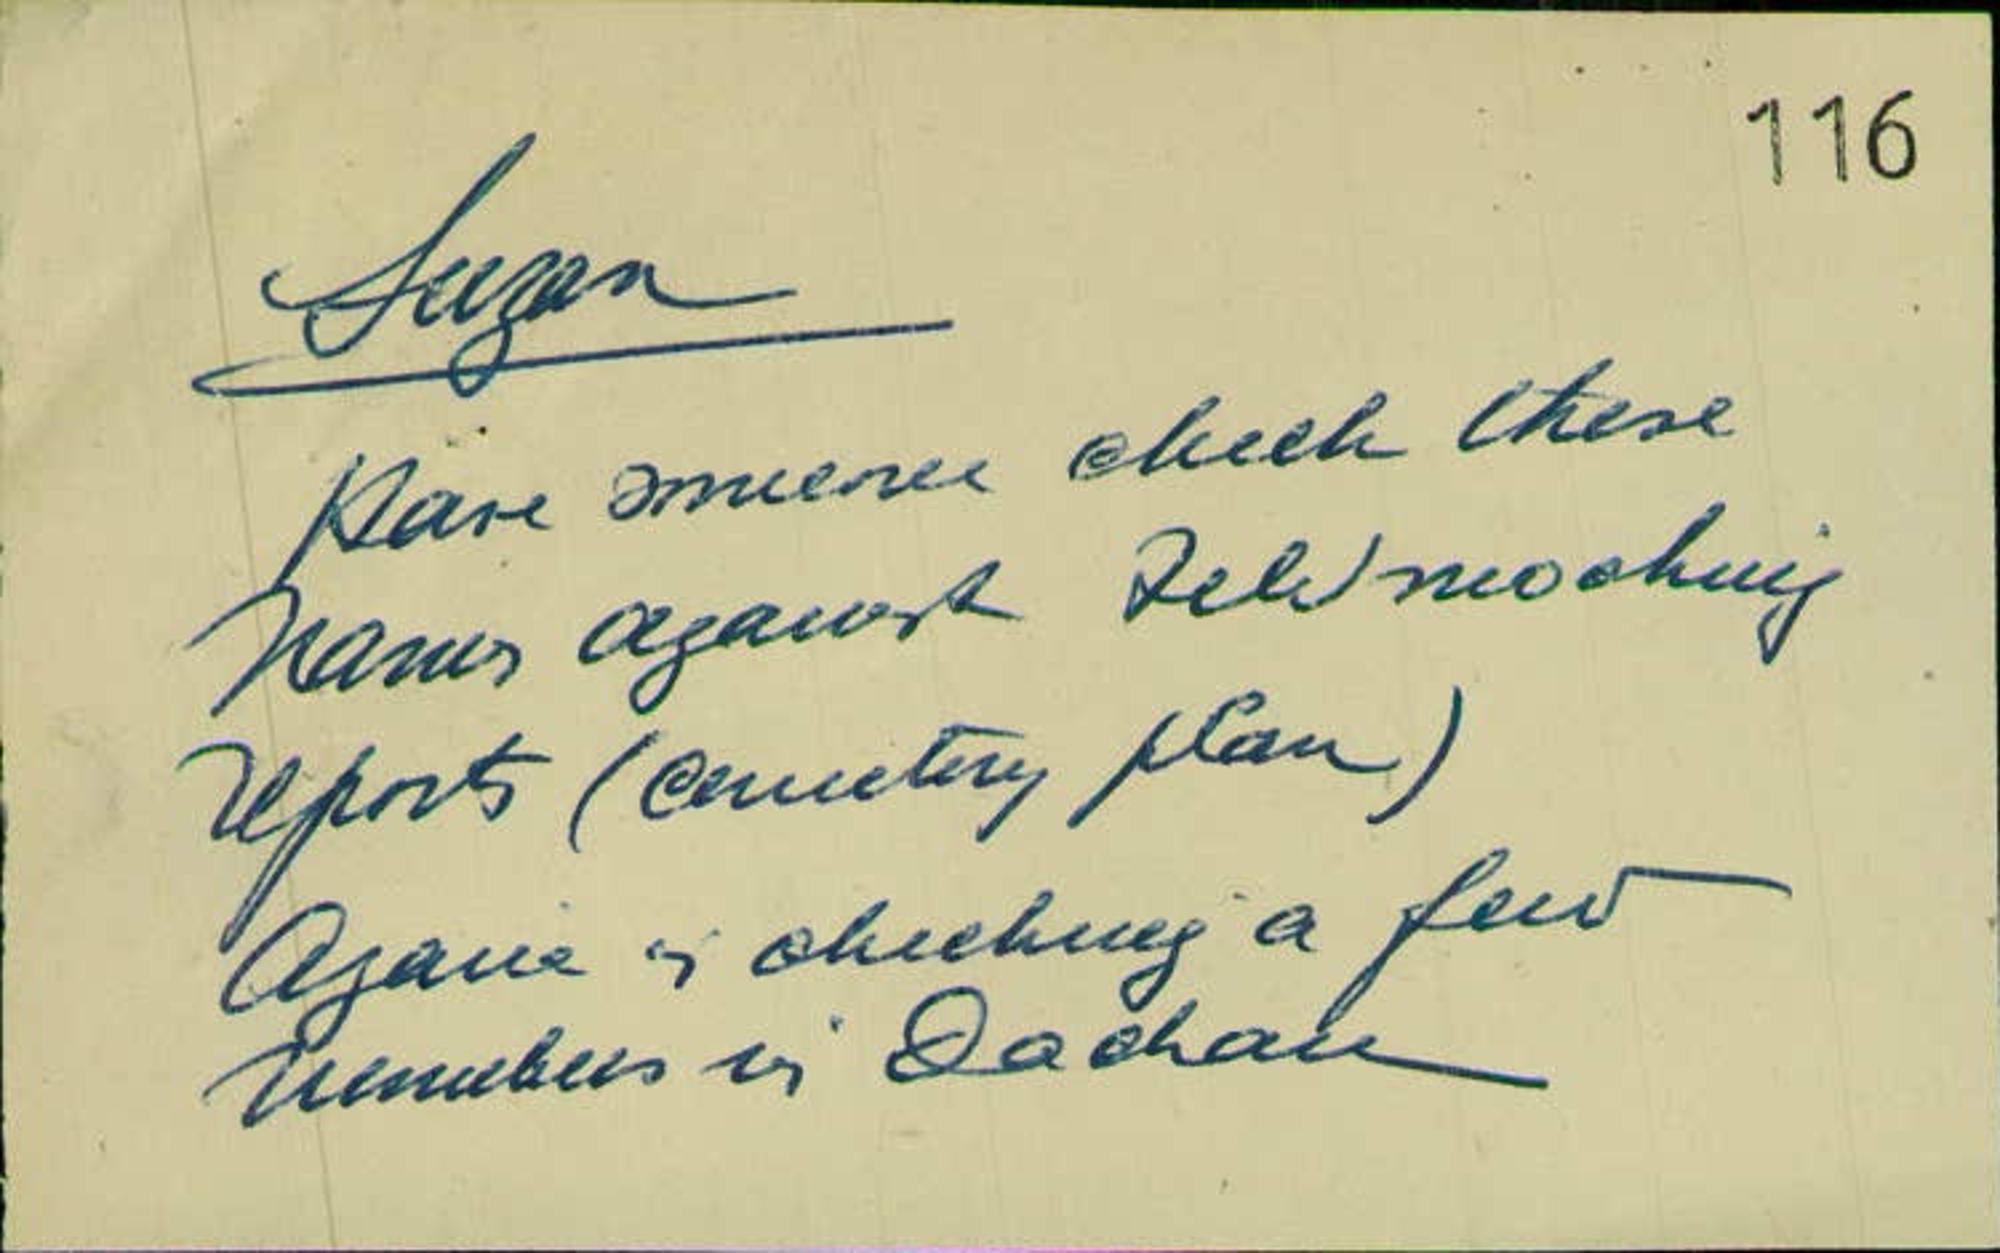 116
Suzan
Have someone check these
names against Feldmoching
reports (cemetery plan)
is checking a few
numbers in Dachau